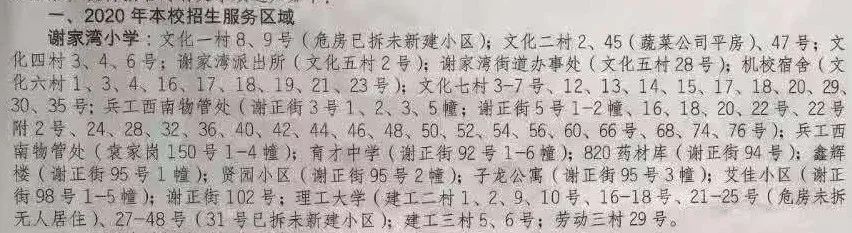 一、2020年本校招生服务区域
谢家湾小学：文化一村8、9号（危房已拆未新建小区）；文化二村2、45（蔬菜公司平房）、47号；文
化四村3、4、6号；谢家湾派出所（文化五村2号）；谢家湾街道办事处（文化五村28号）；机校宿舍（文
化六村1、3、4、16、17、18、19、21、23号）；文化七村3-7号、12、13、14、15、17、18、20、29、
30、35号；兵工西南物管处（谢正街3号1、2、3、5幢；谢正街5号1-2幢、16、18、20、22号、22号
附2号、24、28、32、36、40、42、44、46、48、50、52、54、56、60、66号、68、74、76号）；兵工西
南物管处（袁家岗150号1-4幢）；育才中学（谢正街92号1-6幢）；820药材库（谢正街94号）；鑫辉
楼（谢正街95号1幢）；贤园小区（谢正街95号2幢）；子龙公寓（谢正街95号3幢）；艾佳小区（谢正
街98号1-5幢）；谢正街102号；理工大学（建工二村1、2、9、10号、16-18号、21-25号（危房未拆
无人居住）、27-48号（31号已拆未新建小区）；建工三村5、6号；劳动三村29号。